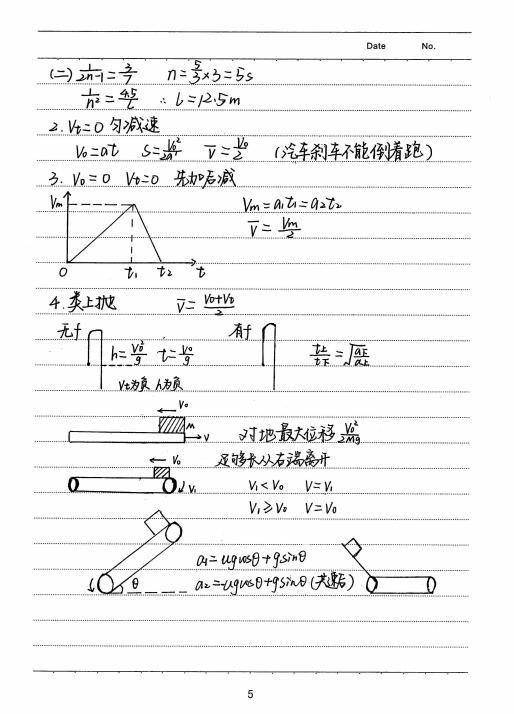 Date No.
(二) 1/(2n-1) = 3/7 n = 5/3 × 3 = 5s
1/n² = 4.5/L ∴ L = 12.5m
2. Vt = 0 匀减速
V₀ = at S = V₀²/2a V̄ = V₀/2 (汽车刹车不能倒着跑)
3. V₀ = 0 Vt = 0 先加后减
Vm
Vm = a₁t₁ = a₂t₂
V̄ = Vm/2
0 t₁ t₂ t
4. 类上抛 V̄ = (V₀+Vt)/2
无f 有f
h = V₀²/g t = V₀/g t上/t下 = √(a下/a上)
Vt为负 h为负
V₀
M
V
对地最大位移 V₀²/2Mg
V₀ 足够长从右端离开
V₁
V₁ < V₀ V = V₁
V₁ ≥ V₀ V = V₀
a₁ = ugcosθ + gsinθ
θ a₂ = -ugcosθ + gsinθ (共速后)
5